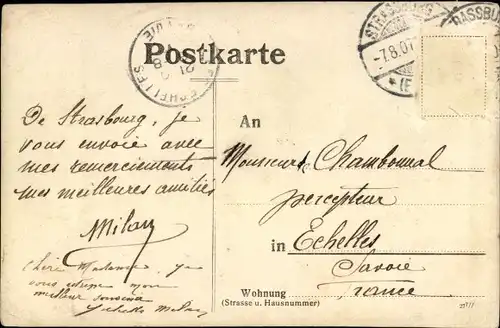 Postkarte
STRASSBURG
-7.8.07
RASSBU
ECHELLES
21
8
De Strasbourg, je
vous envoie avec
mes remerciements
mes meilleures amitiés
Milan
Chère Madame, je
vous
meilleur souvenir
Milan
An
Monsieur Chambonnal
percepteur
in Echelles
Savoie
France
Wohnung
(Strasse u. Hausnummer)